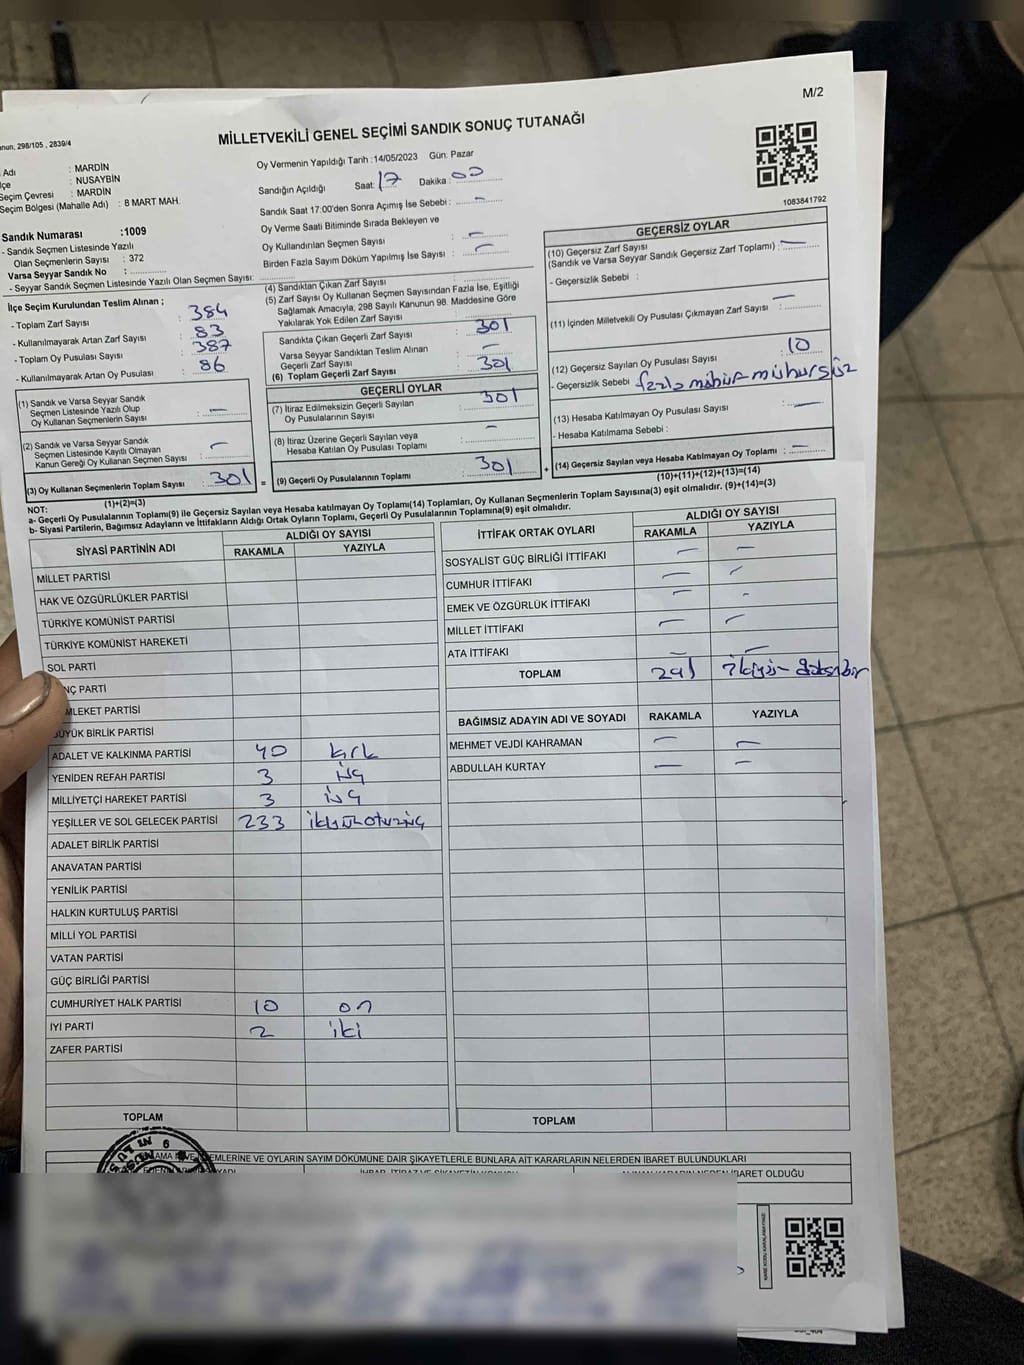 M/2
MİLLETVEKİLİ GENEL SEÇİMİ SANDIK SONUÇ TUTANAĞI
298/105 , 2839/4
Adı : MARDİN
: NUSAYBİN
Seçim Çevresi : MARDİN
Seçim Bölgesi (Mahalle Adı) : 8 MART MAH.
Oy Vermenin Yapıldığı Tarih :14/05/2023 Gün. Pazar
Sandığın Açıldığı Saat: 17 Dakika : 00
Sandık Saat 17:00'den Sonra Açımış İse Sebebi : –
Oy Verme Saati Bitiminde Sırada Bekleyen ve
Oy Kullandırılan Seçmen Sayısı : –
Birden Fazla Sayım Döküm Yapılmış İse Sayısı : –
1083841792
Sandık Numarası :1009
- Sandık Seçmen Listesinde Yazılı
Olan Seçmenlerin Sayısı : 372
Varsa Seyyar Sandık No :
- Seyyar Sandık Seçmen Listesinde Yazılı Olan Seçmen Sayısı:
İlçe Seçim Kurulundan Teslim Alınan ;
- Toplam Zarf Sayısı : 384
- Kullanılmayarak Artan Zarf Sayısı : 83
- Toplam Oy Pusulası Sayısı : 387
- Kullanılmayarak Artan Oy Pusulası : 86
(1) Sandık ve Varsa Seyyar Sandık
Seçmen Listesinde Yazılı Olup
Oy Kullanan Seçmenlerin Sayısı : –
(2) Sandık ve Varsa Seyyar Sandık
Seçmen Listesinde Kayıtlı Olmayan
Kanun Gereği Oy Kullanan Seçmen Sayısı : –
(3) Oy Kullanan Seçmenlerin Toplam Sayısı : 301 =
(1)+(2)=(3)
(4) Sandıktan Çıkan Zarf Sayısı
(5) Zarf Sayısı Oy Kullanan Seçmen Sayısından Fazla İse, Eşitliği
Sağlamak Amacıyla, 298 Sayılı Kanunun 98. Maddesine Göre
Yakılarak Yok Edilen Zarf Sayısı
Sandıkta Çıkan Geçerli Zarf Sayısı : 301
Varsa Seyyar Sandıktan Teslim Alınan
Geçerli Zarf Sayısı : –
(6) Toplam Geçerli Zarf Sayısı : 301
GEÇERLİ OYLAR
(7) İtiraz Edilmeksizin Geçerli Sayılan
Oy Pusulalarının Sayısı : 301
(8) İtiraz Üzerine Geçerli Sayılan veya
Hesaba Katılan Oy Pusulası Toplamı : –
(9) Geçerli Oy Pusulalarının Toplamı : 301 +
GEÇERSİZ OYLAR
(10) Geçersiz Zarf Sayısı
(Sandık ve Varsa Seyyar Sandık Geçersiz Zarf Toplamı) : –
- Geçersizlik Sebebi :
(11) İçinden Milletvekili Oy Pusulası Çıkmayan Zarf Sayısı : –
(12) Geçersiz Sayılan Oy Pusulası Sayısı : 10
- Geçersizlik Sebebi : fazla mühür mühürsüz
(13) Hesaba Katılmayan Oy Pusulası Sayısı : –
- Hesaba Katılmama Sebebi :
(14) Geçersiz Sayılan veya Hesaba Katılmayan Oy Toplamı : –
(10)+(11)+(12)+(13)=(14)
NOT:
a- Geçerli Oy Pusulalarının Toplamı(9) ile Geçersiz Sayılan veya Hesaba katılmayan Oy Toplamı(14) Toplamları, Oy Kullanan Seçmenlerin Toplam Sayısına(3) eşit olmalıdır. (9)+(14)=(3)
b- Siyasi Partilerin, Bağımsız Adayların ve İttifakların Aldığı Ortak Oyların Toplamı, Geçerli Oy Pusulalarının Toplamına(9) eşit olmalıdır.
SİYASİ PARTİNİN ADI ALDIĞI OY SAYISI
RAKAMLA YAZIYLA
MİLLET PARTİSİ
HAK VE ÖZGÜRLÜKLER PARTİSİ
TÜRKİYE KOMÜNİST PARTİSİ
TÜRKİYE KOMÜNİST HAREKETİ
SOL PARTİ
NÇ PARTİ
MLEKET PARTİSİ
BÜYÜK BİRLİK PARTİSİ
ADALET VE KALKINMA PARTİSİ 40 kırk
YENİDEN REFAH PARTİSİ 3 üç
MİLLİYETÇİ HAREKET PARTİSİ 3 üç
YEŞİLLER VE SOL GELECEK PARTİSİ 233 ikiyüzotuzüç
ADALET BİRLİK PARTİSİ
ANAVATAN PARTİSİ
YENİLİK PARTİSİ
HALKIN KURTULUŞ PARTİSİ
MİLLİ YOL PARTİSİ
VATAN PARTİSİ
GÜÇ BİRLİĞİ PARTİSİ
CUMHURİYET HALK PARTİSİ 10 on
İYİ PARTİ 2 iki
ZAFER PARTİSİ
TOPLAM
İTTİFAK ORTAK OYLARI ALDIĞI OY SAYISI
RAKAMLA YAZIYLA
SOSYALİST GÜÇ BİRLİĞİ İTTİFAKI – –
CUMHUR İTTİFAKI – –
EMEK VE ÖZGÜRLÜK İTTİFAKI – –
MİLLET İTTİFAKI – –
ATA İTTİFAKI – –
TOPLAM 291
BAĞIMSIZ ADAYIN ADI VE SOYADI RAKAMLA YAZIYLA
MEHMET VEJDİ KAHRAMAN – –
ABDULLAH KURTAY – –
TOPLAM
EMLERİNE VE OYLARIN SAYIM DÖKÜMÜNE DAİR ŞİKAYETLERLE BUNLARA AİT KARARLARIN NELERDEN İBARET BULUNDUKLARI
İBARET OLDUĞU